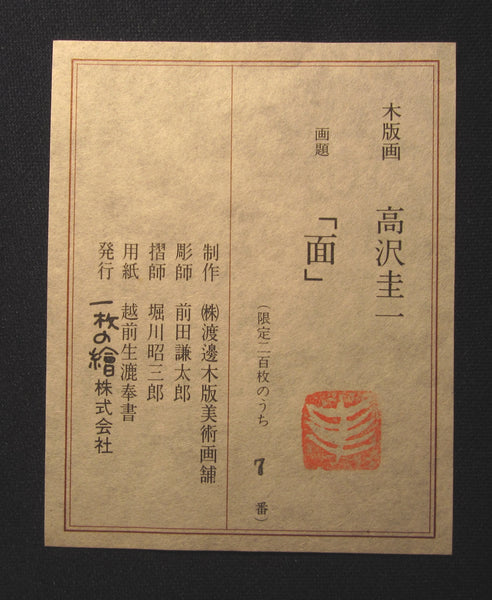 木版画 高沢圭一
画題 「面」
(限定二百枚のうち 7 番)
制作 ㈱渡邊木版美術画舗
彫師 前田謙太郎
摺師 堀川昭三郎
用紙 越前生漉奉書
発行 一枚の繪株式会社